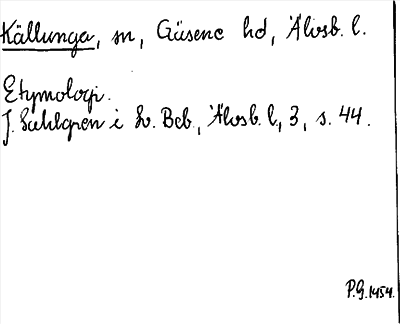 Källunga, sn, Gäsene hd, Älvsb. l.
Etymologi.
J. Sahlgren i Sv. Beb., Älvsb. l, 3, s. 44.
P.G. 1454.